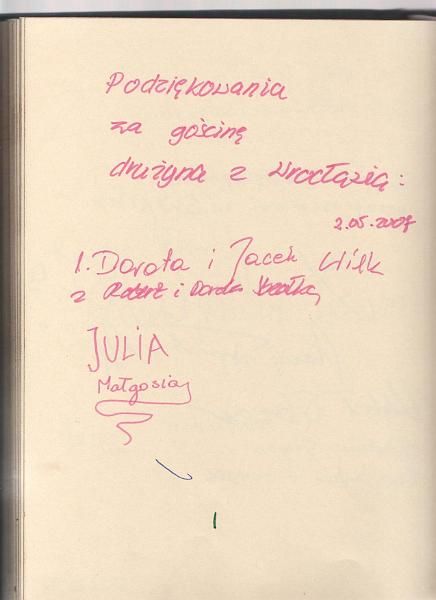 Podziękowania
za gościnę
drużyna z Wrocławia:
2.05.2007
1. Dorota i Jacek Wilk
2 Robert i
JULIA
Małgosia